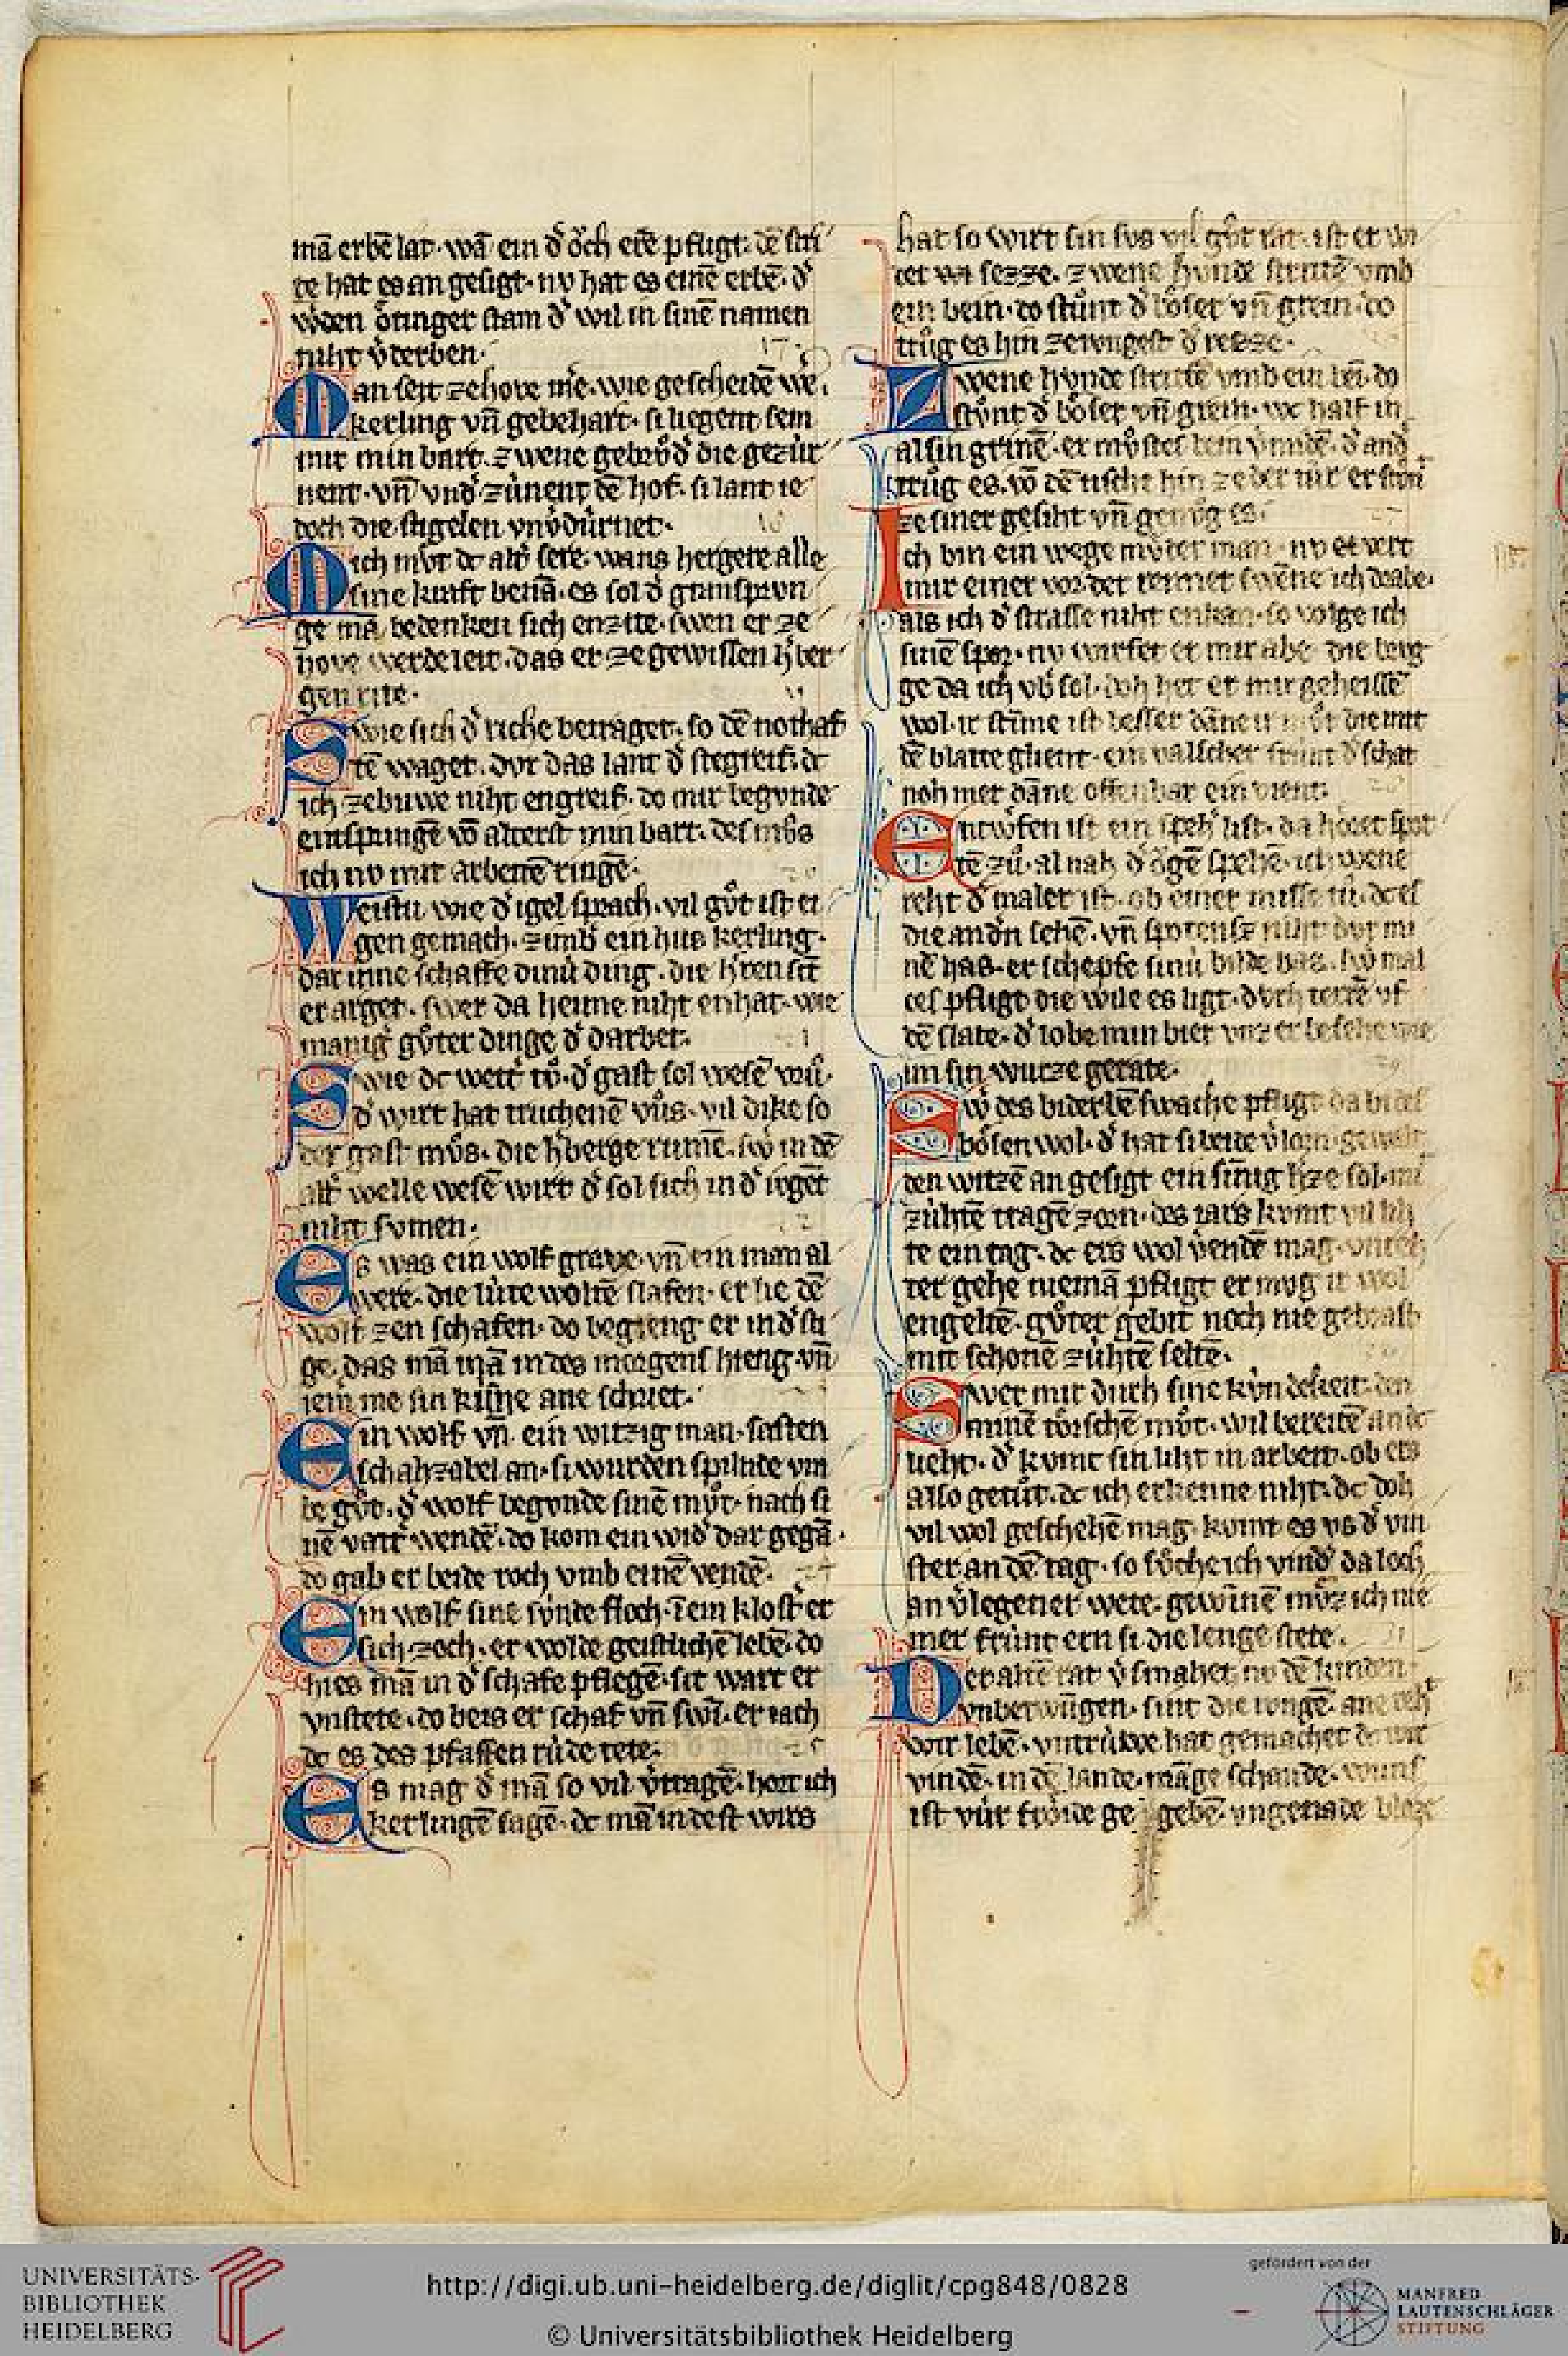 mā erbē lat· wā ein d᷑ och ere pfligt· dē stri
te hat es an gesigt· nv hat es einē erbē· d᷑
von ötinger stam d᷑ wil in sinē namen
niht v᷑derben·
Man seit ze hove me· wie gescheidē we
kerling vn̄ gebehart· si liegent sem
mir min bart· zwene gebrůd᷑ die gezúr
nent· vn̄ vnd᷑zúnent dē hof· si lant ie
doch die stigelen vnv᷑dúrnet·
Mich můt dc alt᷑ sere· wans hergere alle
sine kraft benā· es sol d᷑ gransprvn
ge mā bedenken sich enzite· swen er ze
hove werde leit· das er ze gewissen h᷑ber
gen rite·
Swie sich d᷑ riche betraget· so dē nothaf
tē waget· dvr das lant d᷑ stegreif· dc
ich ze buwe niht engreif· do mir begvnde
entspringē vō alterst min bart· des můs
ich nv mit arbeitē ringē·
Weistu wie d᷑ igel sprach· vil gůt ist ei
gen gemach· zimb᷑ ein hus kerling·
dar inne schaffe dinú ding· die h᷑ren sint
er arget· swer da heime niht enhat· wie
manig᷑ gůter dinge d᷑ darbet·
Swie dc wett᷑ tů· d᷑ gast sol wesē vrů·
d᷑ wirt hat truchenē vůs· vil dike so
der gast můs· die h᷑berge rumē· sw᷑ in dē
alt᷑ welle wesē wirt d᷑ sol sich in d᷑ ivgēt
niht svmen·
Es was ein wolf grawe· vn̄ ein man al
were· die lúte woltē slafen· er lie dē
wolf zen schafen· do begieng er in d᷑ sti
ge· das mā in des morgens hieng vn̄
iem᷑ me sin kúnne ane schriet·
Ein wolf vn̄ ein witzig man· sasten
schahzabel an· si wurden spilnde vm
be gůt· d᷑ wolf begvnde sinē můt· nach si
nē vatt᷑ wendē· do kom ein wid᷑ dar gegā·
do gab er beide roch vmb einē vendē·
Ein wolf sine súnde floch· in ein klost᷑er
sich zoch· er wolde geistlichē lebē· do
hies mā in d᷑ schafe pflegē· sit wart er
vnstete· do beis er schaf vn̄ swī· er iach
dc es des pfaffen rúde tete·
Es mag d᷑ mā so vil v᷑tragē· hort ich
kerlingē sagē· dc mā in dest wirs
hat so wirt sin svs vil gůt rat· ist er wi
der sezze· zwene hvnde stritē vmb
ein bein· do stůnt d᷑ böser vn̄ grein· do
trůg es hin
Zwene hvnde strittē vmb ein bēi· do
stůnt d᷑ böser vn̄ grein· wc half in
al sin grinē· er můste bein v᷑midē· d᷑ and᷑
trůg es· vō dē tische hin ze der túr er stůnt
ze siner gesiht vn̄ genůg es·
Ich bin ein wege můder man· nv
mir einer vor· der rennet swēne ich drabe·
als ich d᷑ strasse niht enkan· so volge ich
sinē spor· nv wirfet er mir abe die brvg
ge da ich vb᷑ sol· doh her er mir geheissē
wol· ir stīme ist besser dāne ir můt die mit
dē blatte glient· ein valscher frúnt d᷑ schat
noh mer dāne offenbar ein vient·
Entwrfen ist ein speh᷑ list· da höret spot
tē zů· al nah d᷑ ögē spehē· ich wene
reht d᷑ maler ist· ob einer misse tů· dc es
die and᷑n sehē· vn̄ spotens niht dvr mi
nē has· er schepfe sinú bilde bas· sw᷑ mal
ces pfligt die wile es ligt· dvrh derrē vf
dē slate· d᷑ lobe min bier vnz er besehe wie
im sin wurze gerate·
Sw᷑ des biderbē swache pfligt da bi des
bösen wol· d᷑ hat si beide v᷑lorn· gewalt
den witzē an gesigt ein sīnig h᷑ze sol mi
zúhtē tragē zorn· des iars komt vil lih
te ein tag· dc ers wol v᷑endē mag·
ter gehe niemā pfligt er mvg ir wol
engeltē· gůter gebit noch nie gebrast
mit schonē zúhtē seltē·
Swer mir durh sine kvndekeit den
minē törschē můt· wil bereitē an dc
lieht· d᷑ kvmt sin liht in arbeit· ob ers
also getůt· dc ich erkenne niht· dc doh
vil wol geschehē mag· kvmt es vs d᷑ vin
ster an dē tag· so sůche ich vind᷑ da loch
an v᷑legener wete· gewīnē můz ich nie
mer frúnt ern si die lenge stete·
Der altē rat v᷑smahet nv dē kinden
vnbetwūgen· sint die ivngē ane reht
wir lebē· vntrúwe hat gemachet dc wir
vindē· in dē lande· māge schande· wuns
ist vúr fröide ge gebē· vngenade bloze
UNIVERSITÄTS-
BIBLIOTHEK
HEIDELBERG
http://digi.ub.uni-heidelberg.de/diglit/cpg848/0828
© Universitätsbibliothek Heidelberg
gefördert von der
MANFRED
LAUTENSCHLÄGER
STIFTUNG